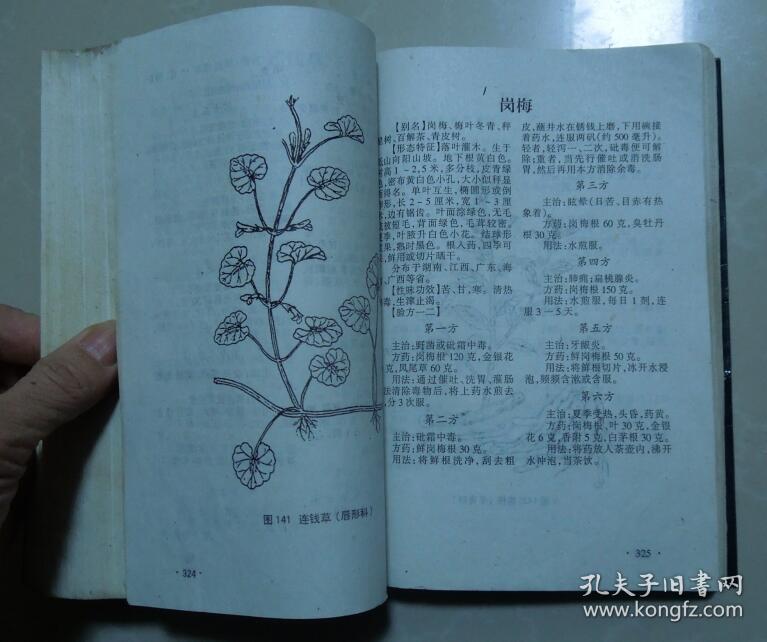 图141 连钱草（唇形科）
·324·
岗梅
【别名】岗梅、梅叶冬青、秤
树、百解茶、青皮树。
【形态特征】落叶灌木。生于
低山向阳山坡。地下根黄白色。
树高1－2,5米,多分枝,皮青绿
色,密布黄白色小孔,大小似秤星
而得名。单叶互生,椭圆形或倒
卵形,长2－5厘米,宽1－3厘
米,边有锯齿。叶面涂绿色,无毛
或被短毛,背面绿色,毛茸较密。
夏季,叶腋升白色小花。结球形
浆果,熟时黑色。根入药,四季可
采,鲜用或切片晒干。
分布于湖南、江西、广东、海
南、广西等省。
【性味功效】苦、甘,寒。清热
解毒,生津止渴。
【验方一二】
第一方
主治:野菌或砒霜中毒。
方药:岗梅根120克,金银花
克,凤尾草60克。
用法:通过催吐、洗胃、灌肠
法清除毒物后,将上药水煎去
,分3次服。
第二方
主治:砒霜中毒。
方药:鲜岗梅根30克。
用法:将鲜根洗净,刮去粗
皮,蘸井水在锈钱上磨,下用碗接
着药水,连服两矾(约500毫升)。
轻者,轻泻一、二次,砒毒便可解
除;重者,当先行催吐或消洗肠
胃,然后再用本方消除余毒。
第三方
主治:眩晕(日苦、目赤有热
象着)。
方药:岗梅根60克,臭牡丹
根30克。
用法:水煎服。
第四方
主治:肺痈;扁桃腺炎。
方药:岗梅根150克。
用法:水煎服,每日1剂,连
服3－5天。
第五方
主治:牙龈炎。
方药:鲜岗梅根50克。
用法:将鲜根切片,冰开水浸
泡,频频含漱或含服。
第六方
主治:夏季受热,头昏,药黄。
方药:岗梅根、叶30克,金银
花6克,香附5克,白茅根30克。
用法:将药放人茶壶内,沸开
水冲泡,当茶饮。
·325·
孔夫子旧書网
www.kongfz.com